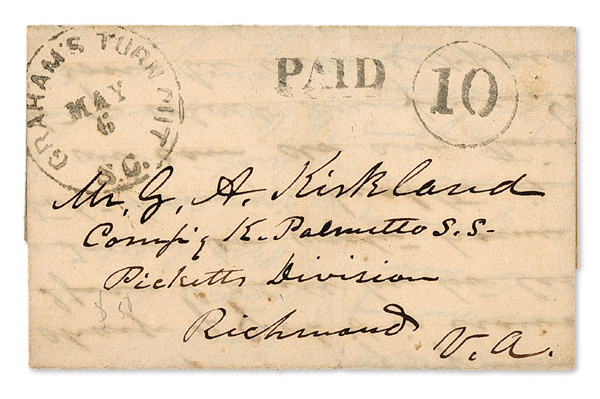 GRAHAM'S TURN OUT
MAY
6
S.C.
PAID
10
Mr, G, A. Kirkland
Comp'y K. Palmetto S.S-
Picketts Division
Richmond
V.A.